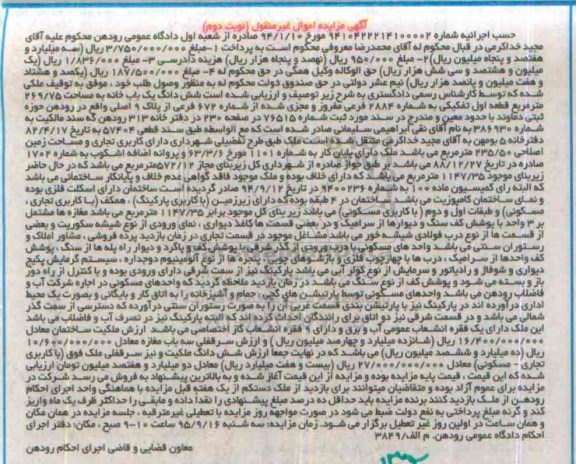 آگهی مزایده اموال غیرمنقول (نوبت دوم)
حسب اجرائیه شماره ۹۴۱۰۴۲۲۲۱۴۱۰۰۰۰۲ مورخ ۹۴/۱/۱۰ صادره از شعبه اول دادگاه عمومی رودهن محکوم علیه آقای
مجید خداکرمی در قبال محکوم له آقای محمدرضا معروفی محکوم است به پرداخت ۱-مبلغ ۳/۷۵۰/۰۰۰/۰۰۰ ریال (سه میلیارد و
هفتصد و پنجاه میلیون ریال) ۲- مبلغ ۹۵۰/۰۰۰ ریال (نهصد و پنجاه هزار ریال) هزینه دادرسی ۳- مبلغ ۱/۸۳۶/۰۰۰ ریال (یک
میلیون و هشتصد و سی شش هزار ریال) حق الوکاله وکیل همگی در حق محکوم له ۴- مبلغ ۱۸۷/۵۰۰/۰۰۰ ریال (یکصد و هشتاد
و هفت میلیون و پانصد هزار ریال) نیم عشر دولتی در حق صندوق دولت محکوم له به منظور وصول طلب خود ، موفق به توقیف ملکی
شده که توسط کارشناس رسمی دادگستری به شرح زیر توصیف و ارزیابی شده است شش دانگ یک باب خانه به مساحت ۲۶۹/۷۵
مترمربع قطعه اول تفکیکی به شماره ۲۸۸۴ فرعی مفروز و مجزی شده از شماره ۶۷۲ فرعی از پلاک ۹ اصلی واقع در رودهن حوزه
ثبتی دماوند با حدود معین و مندرج در سند مورد ثبت شماره ۷۶۵۱۵ در صفحه ۲۳۰ در دفتر خانه ۳۱۳ رودهن که سند مالکیت به
شماره ۳۸۶۹۳۰ به نام آقای نقی ابراهیمی سلیمانی صادر شده است که مع الواسطه طبق سند قطعی ۵۷۴۰۴ به تاریخ ۸۲/۴/۱۷
دفترخانه ۵ بومهن به آقای مجید خداکرمی منتقل شده است ملک طبق طرح تفضیلی شهرداری دارای کاربری تجاری و مساحت زمین
اصلاحی ۲۳۵/۵۰ مترمربع می باشد ملک دارای پایان کار به شماره ۱۱۰۱ مورخ ۶۳/۳/۶ و پروانه اضافه اشکوب به شماره ۱۷۰۲
صادره در تاریخ ۸۸/۱۲/۲۷ می باشد بر طبق جواز صادره از شهرداری کل زیربنای مجاز ۵۷۲/۱۲ مترمربع می باشد که در حال حاضر
زیربنای موجود ۱۱۴۷/۳۵ مترمربع می باشد که دارای خلاف بوده و ملک موجود فاقد گواهی عدم خلاف و پایانکار ساختمانی می باشد
که البته رای کمیسیون ماده ۱۰۰ به شماره ۹۴۰۰۲۳۶ در تاریخ ۹۴/۹/۱۲ صادر گردیده است ساختمان دارای اسکلت فلزی بوده
و نمای ساختمان کامپوزیت می باشد. ساختمان در ۴ طبقه بوده که دارای زیرزمین (با کاربری پارکینگ) ، همکف (با کاربری تجاری ،
مسکونی) و طبقات اول و دوم (با کاربری مسکونی) می باشد زیر بنای کل موجود برابر ۱۱۴۷/۳۵ مترمربع می باشد مغازه ها مشتمل
بر ۳ واحد با پوشش کف سنگ و دیوارها از سرامیک و در بعضی قسمت ها کاغذ دیواری ، نمای ورودی از نوع شیشه سکوریت و بعضی
از قسمت ها از نوع درب فولادی شیشه خور می باشد مشاغل موجود در قسمت تجاری در زمان بازدید پرده فروشی ، مشاور املاک و
رستوران سنتی می باشد واحد های مسکونی با درب ورودی از گذر شرقی با پوشش کف و پاگرد و دیوار راه پله ها از سنگ ، پوشش
کف واحدها از سرامیک ، درب ها با چهارچوب فلزی و بازشوهای چوبی ، پنجره ها از نوع آلومینیوم دوجداره ، سیستم گرمایش پکیج
دیواری و شوفاژ و رادیاتور و سرمایش از نوع کولر آبی می باشد پارکینگ نیز از سمت شرقی دارای ورودی بوده و با کنترل از راه دور
باز و بسته می شود و پوشش کف از نوع سنگ می باشد در زمان بازدید ملاحظه گردید که واحدهای مسکونی در اجاره شرکت آب و
فاضلاب رودهن می باشد واحدهای مسکونی توسط پارتیشن های گچی ، حمام و آشپزخانه را به اتاق کار و بایگانی و بصورت یک محیط
اداری درآورده اند در پارکینگ نیز با پارتیشن بندی قسمت غربی آن را به صورت رستوران سنتی درآورده که دسترسی از سمت گذر
شمالی می باشد و در قسمت شرقی نیز دو اتاق برای رانندگان احداث کرده اند که البته پارکینگ نیز در تصرف آب و فاضلاب می باشد
این ملک دارای یک فقره انشعاب عمومی آب و برق و دارای ۹ فقره انشعاب گاز اختصاصی می باشد ارزش ملکیت ساختمان معادل
۱۶/۴۰۰/۰۰۰/۰۰۰ ریال (شانزده میلیارد و چهارصد میلیون ریال) و ارزش سرقفلی سه باب مغازه معادل ۱۰/۶۰۰/۰۰۰/۰۰۰
ریال (ده میلیارد و ششصد میلیون ریال) می باشد که در نهایت جمعا ارزش شش دانگ ملکیت و نیز سرقفلی ملک فوق (با کاربری
تجاری - مسکونی) معادل ۲۷/۰۰۰/۰۰۰/۰۰۰ ریال (بیست و هفت میلیارد ریال) معادل دو میلیارد و هفتصد میلیون تومان ارزیابی
شده که این قیمت ، قیمت پایه مزایده بوده و مزایده از این قیمت آغاز شده و به بالاترین پیشنهاد به فروش می رسد شرکت در
مزایده برای عموم آزاد بوده و متقاضیان میتوانند برای بازدید از ملک دستکم از یک هفته قبل مزایده با هماهنگی واحد اجرای احکام
رودهن از ملک بازدید کنند برنده مزایده باید حداقل ده درصد مبلغ پیشنهادی را نقدا داده و مابقی را حداکثر ظرف یک ماه واریز
کند و گرنه مبلغ پرداختی به نفع دولت ضبط می شود در صورت مواجهه روز مزایده با تعطیلی غیرمترقبه ، جلسه مزایده در همان مکان
و همان ساعت در اولین روز غیر تعطیل برگزار می شود. زمان مزایده: سه شنبه ۹۵/۹/۱۶ ساعت ۱۰-۹ صبح، مکان: دفتر اجرای
احکام دادگاه عمومی رودهن. م الف/۳۸۴۹
معاون قضایی و قاضی اجرای احکام رودهن